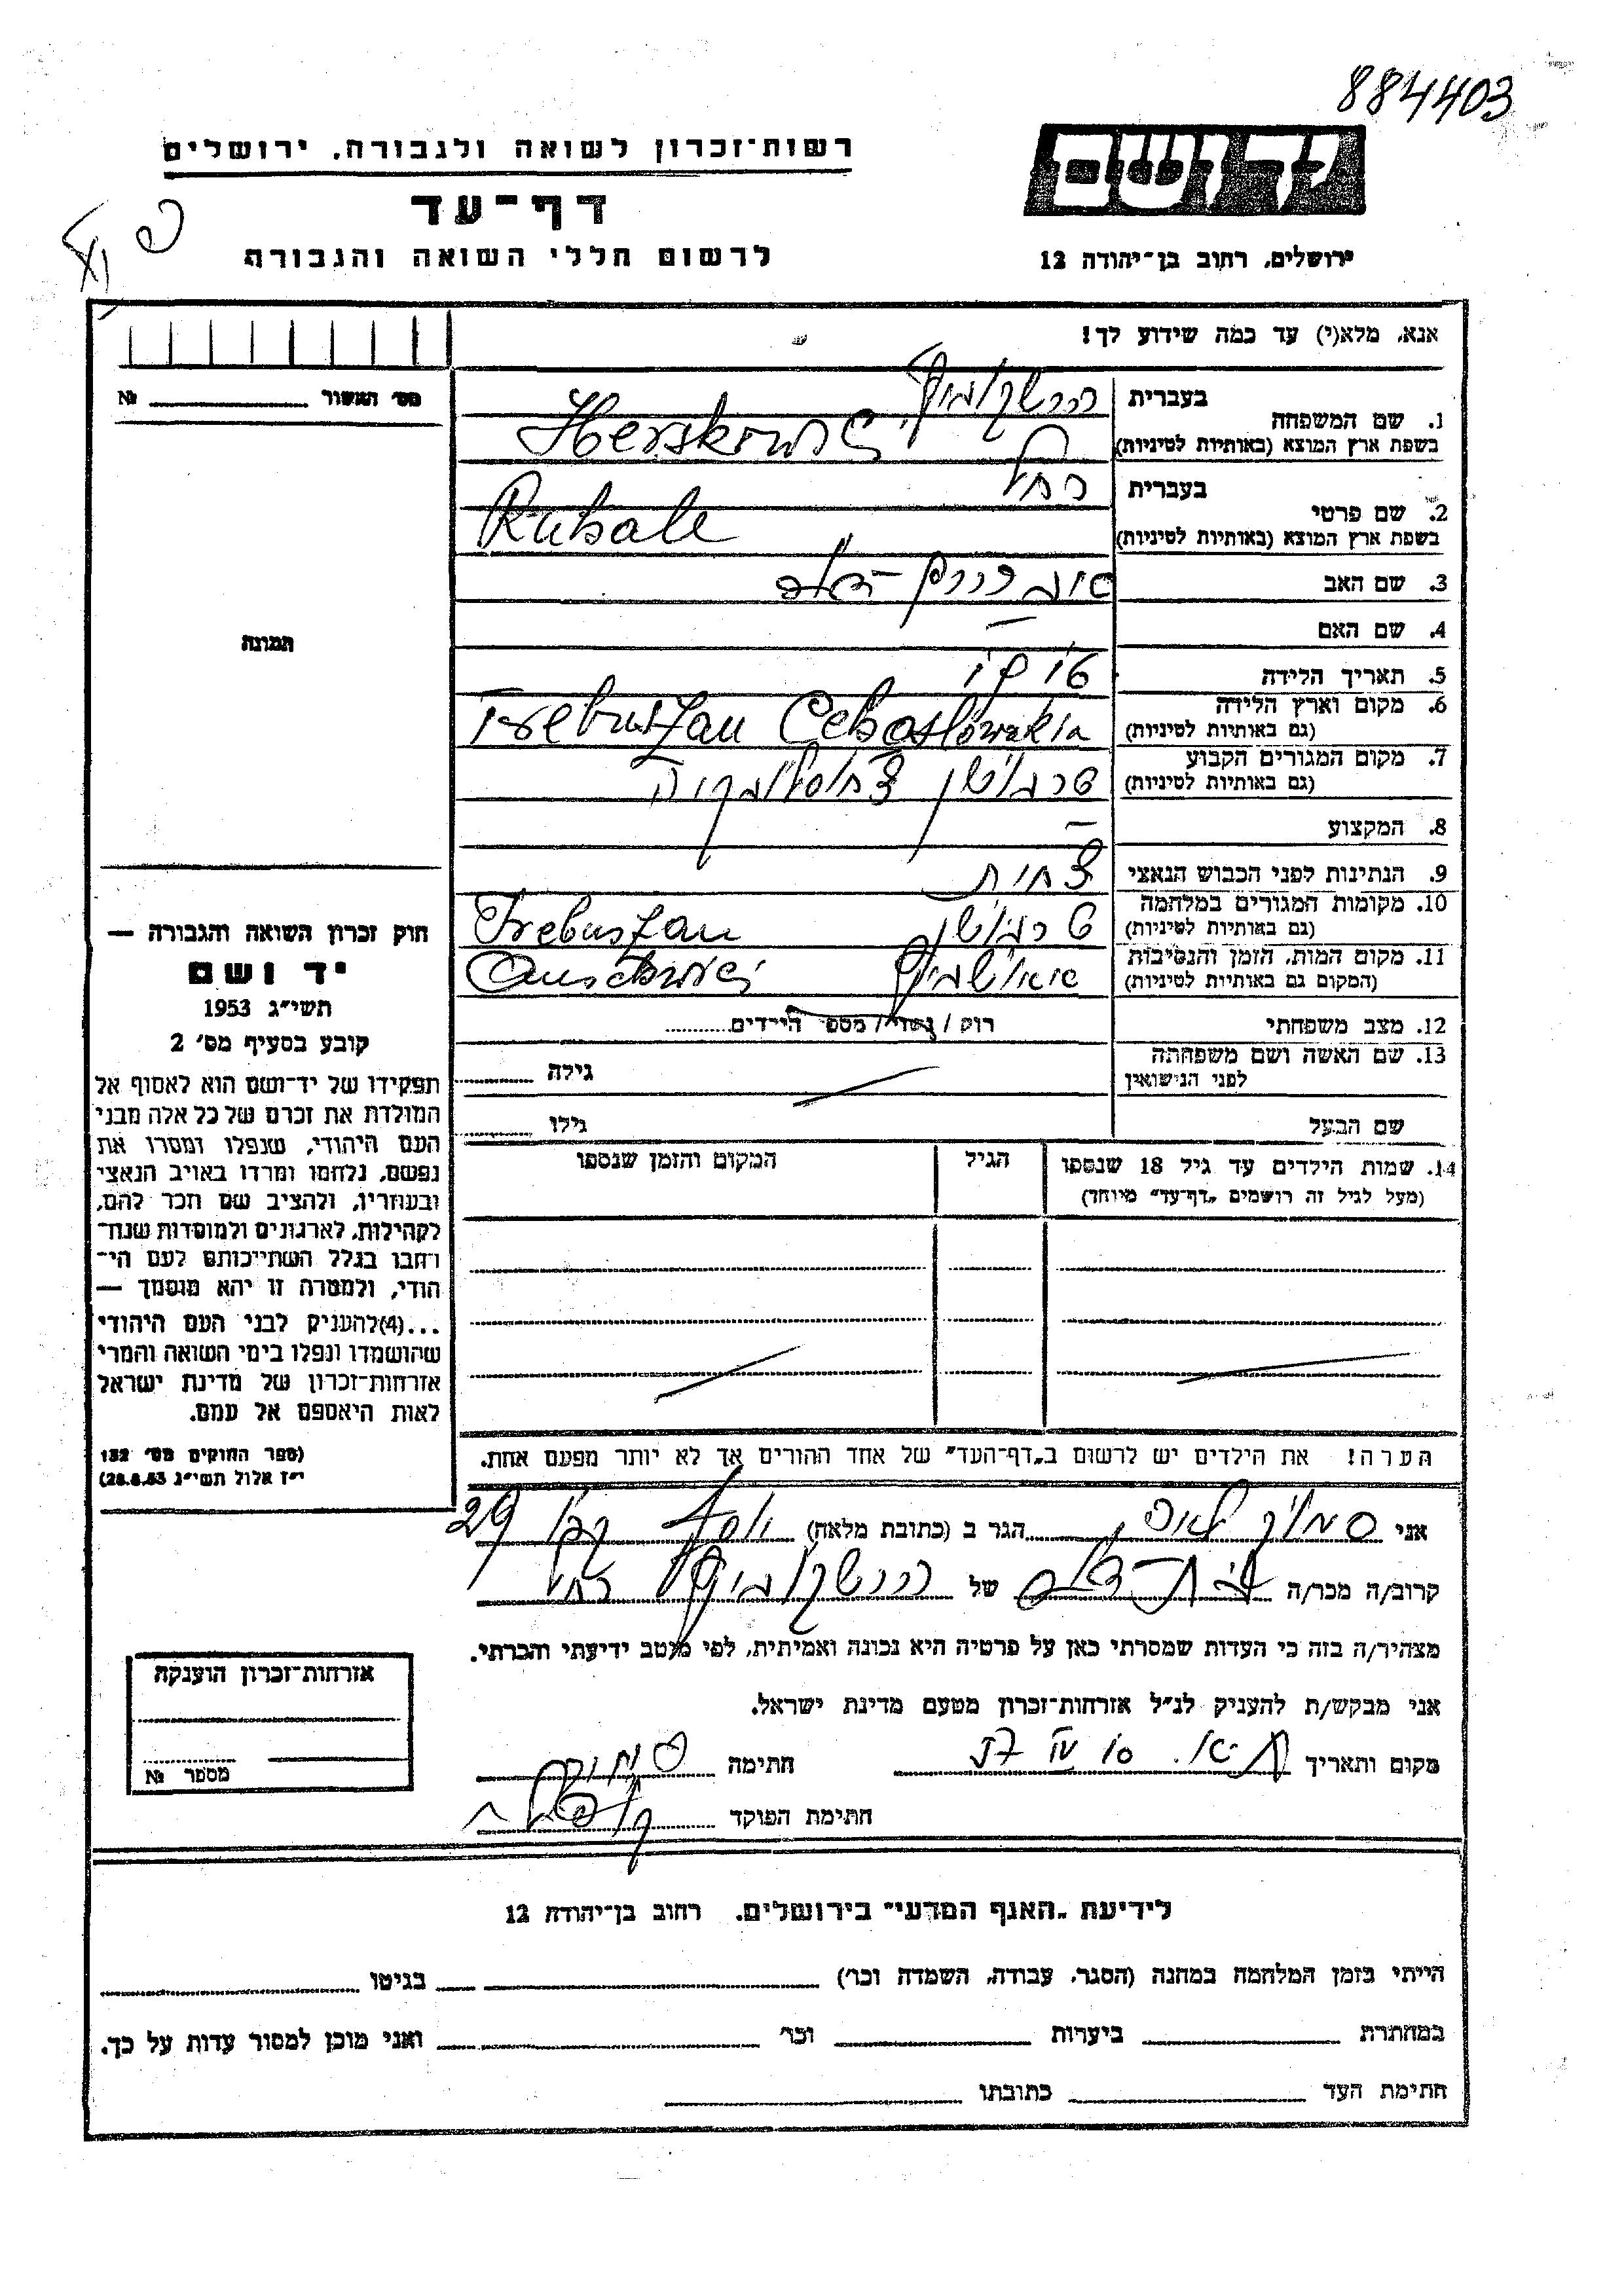 884403
רשות-זכרון לשואה ולגבורה, ירושלים
יד ושם
דף-עד
לרשום חללי השואה והגבורה
ירושלים, רחוב בן-יהודה 12
אנא, מלא(י) עד כמה שידוע לך!
מס' האשור № 
בעברית הרשקוביץ
1. שם המשפחה
בשפת ארץ המוצא (באותיות לטיניות) Herskowitz
בעברית רחל
2. שם פרטי
בשפת ארץ המוצא (באותיות לטיניות) Ruhale
3. שם האב
4. שם האם –
תמונה
5. תאריך הלידה
6. מקום וארץ הלידה
(גם באותיות לטיניות) Trebuszan Cehoslowakia
7. מקום המגורים הקבוע
(גם באותיות לטיניות) טרבושן צ'חוסלובקיה
8. המקצוע –
9. הנתינות לפני הכבוש הנאצי צ'חית
10. מקומות המגורים במלחמה
(גם באותיות לטיניות) טרבושן Trebuszan
11. מקום המות, הזמן והנסיבות
(המקום גם באותיות לטיניות) אאושביץ Auschwitz
12. מצב משפחתי רוק / נשוי / מספ' הילדים
13. שם האשה ושם משפחתה
לפני הנישואין גילה
שם הבעל גילו
14. שמות הילדים עד גיל 18 שנספו הגיל המקום והזמן שנספו
(מעל לגיל זה רושמים "דף-עד" מיוחד)
חוק זכרון השואה והגבורה —
יד ושם
תשי"ג 1953
קובע בסעיף מס' 2
תפקידו של יד-ושם הוא לאסוף אל
המולדת את זכרם של כל אלה מבני
העם היהודי, שנפלו ומסרו את
נפשם, נלחמו ומרדו באויב הנאצי
ובעוזריו, ולהציב שם וזכר להם,
לקהילות, לארגונים ולמוסדות שנח-
רחבו בגלל השתייכותם לעם הי-
הודי, ולמטרה זו יהא מוסמך —
...(4) להעניק לבני העם היהודי
שהושמדו ונפלו בימי השואה והמרי
אזרחות-זכרון של מדינת ישראל
לאות היאספם אל עמם.
(ספר החוקים מס' 132
י"ז אלול תשי"ג 28.8.53)
הערה! את הילדים יש לרשום ב"דף-העד" של אחד ההורים אך לא יותר מפעם אחת.
אני הגר ב (כתובת מלאה) 29
קרוב/ה מכר/ה של הרשקוביץ רחל
מצהיר/ה בזה כי העדות שמסרתי כאן על פרטיה היא נכונה ואמיתית, לפי מיטב ידיעתי והכרתי.
אני מבקש/ת להעניק לנ"ל אזרחות-זכרון מטעם מדינת ישראל.
מקום ותאריך חתימה
חתימת הפוקד
אזרחות-זכרון הוענקה
מספר №
לידיעת "האגף המדעי" בירושלים, רחוב בן-יהודה 12
הייתי בזמן המלחמה במחנה (הסגר, עבודה, השמדה וכו') בגיטו
במחתרת ביערות וכו' ואני מוכן למסור עדות על כך.
חתימת העד כתובתו